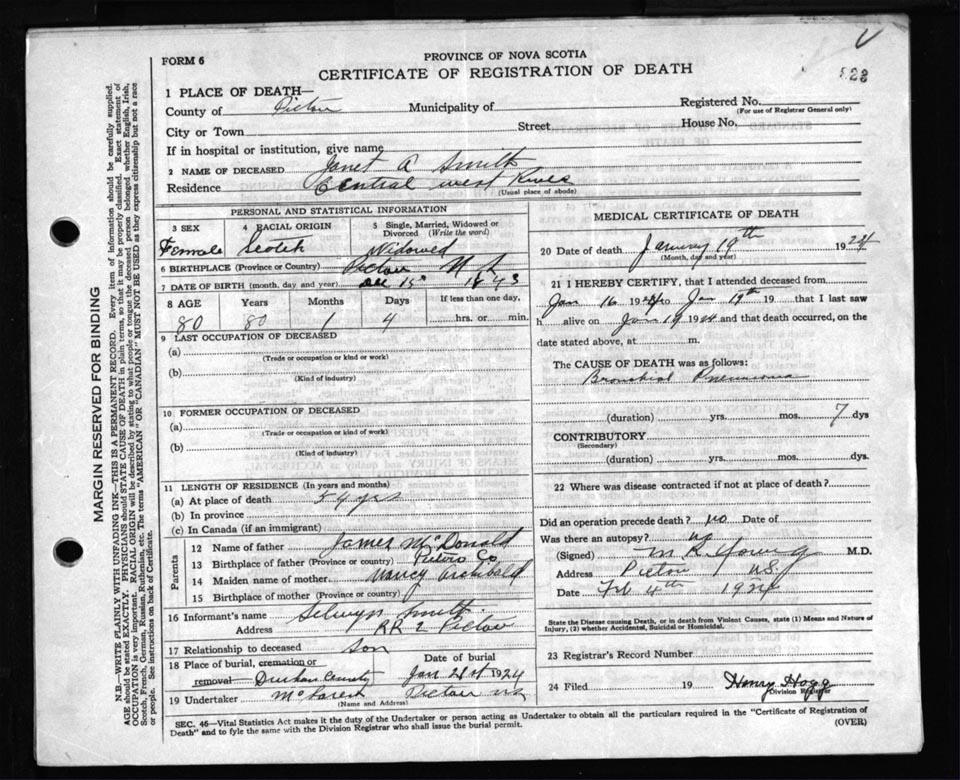 FORM 6
PROVINCE OF NOVA SCOTIA
CERTIFICATE OF REGISTRATION OF DEATH
1 PLACE OF DEATH—
County of Pictou Municipality of Registered No.
(For use of Registrar General only)
City or Town Street House No.
If in hospital or institution, give name
2 NAME OF DECEASED Janet A Smith
Residence Central West River
(Usual place of abode)
PERSONAL AND STATISTICAL INFORMATION
3 SEX 4 RACIAL ORIGIN 5 Single, Married, Widowed or Divorced (Write the word)
Female Scotch Widowed
6 BIRTHPLACE (Province or Country) Pictou N S
7 DATE OF BIRTH (month, day, and year) Dec 15th 1843
8 AGE Years Months Days If less than one day,
80 80 1 4 hrs. or min.
9 LAST OCCUPATION OF DECEASED
(a)
(Trade or occupation or kind or work)
(b)
(Kind of industry)
10 FORMER OCCUPATION OF DECEASED
(a)
(Trade or occupation or kind of work)
(b)
(Kind of industry)
11 LENGTH OF RESIDENCE (In years and months)
(a) At place of death 54 yrs
(b) In province
(c) In Canada (if an immigrant)
Parents
12 Name of father James McDonald
13 Birthplace of father (Province or country) Pictou Co
14 Maiden name of mother Nancy Archibald
15 Birthplace of mother (Province or country)
16 Informant's name Selwyn Smith
Address RR 2 Pictou
17 Relationship to deceased son
18 Place of burial, cremation or removal Durham County
Date of burial Jan 21st 1924
19 Undertaker Pictou NS
(Name and Address)
MEDICAL CERTIFICATE OF DEATH
20 Date of death January 19th 1924
(Month, day and year)
21 I HEREBY CERTIFY, that I attended deceased from
Jan 16 1924 to Jan 19th 19 that I last saw
h alive on Jan 19 1924 and that death occurred, on the
date stated above, at m.
The CAUSE OF DEATH was as follows:
Bronchial Pneumonia
(duration) yrs. mos. 7 dys
CONTRIBUTORY
(Secondary)
(duration) yrs. mos. dys.
22 Where was disease contracted if not at place of death?
Did an operation precede death? no Date of
Was there an autopsy? no
(Signed) M R Young M.D.
Address Pictou N.S.
Date Feb 4th 1924
State the Disease causing Death, or in death from Violent Causes, state (1) Means and Nature of Injury, (2) whether Accidental, Suicidal or Homicidal.
23 Registrar's Record Number
24 Filed 19 Henry Hogg
Division Registrar
SEC. 46—Vital Statistics Act makes it the duty of the Undertaker or person acting as Undertaker to obtain all the particulars required in the "Certificate of Registration of
Death" and to fyle the same with the Division Registrar who shall issue the burial permit. (OVER)
MARGIN RESERVED FOR BINDING
N.B.—WRITE PLAINLY WITH UNFADING INK—THIS IS A PERMANENT RECORD. Every item of information should be carefully supplied.
AGE should be stated EXACTLY. PHYSICIANS should STATE CAUSE OF DEATH in plain terms, so that it may be properly classified. Exact statement of
OCCUPATION is very important. RACIAL ORIGIN will be described by stating to what people or tongue the deceased person belonged whether English, Irish,
Scotch, French, German, Russian, Ruthenian, etc. The terms "AMERICAN" OR "CANADIAN" MUST NOT BE USED as they express citizenship but not a race
or people. See instructions on back of Certificate.